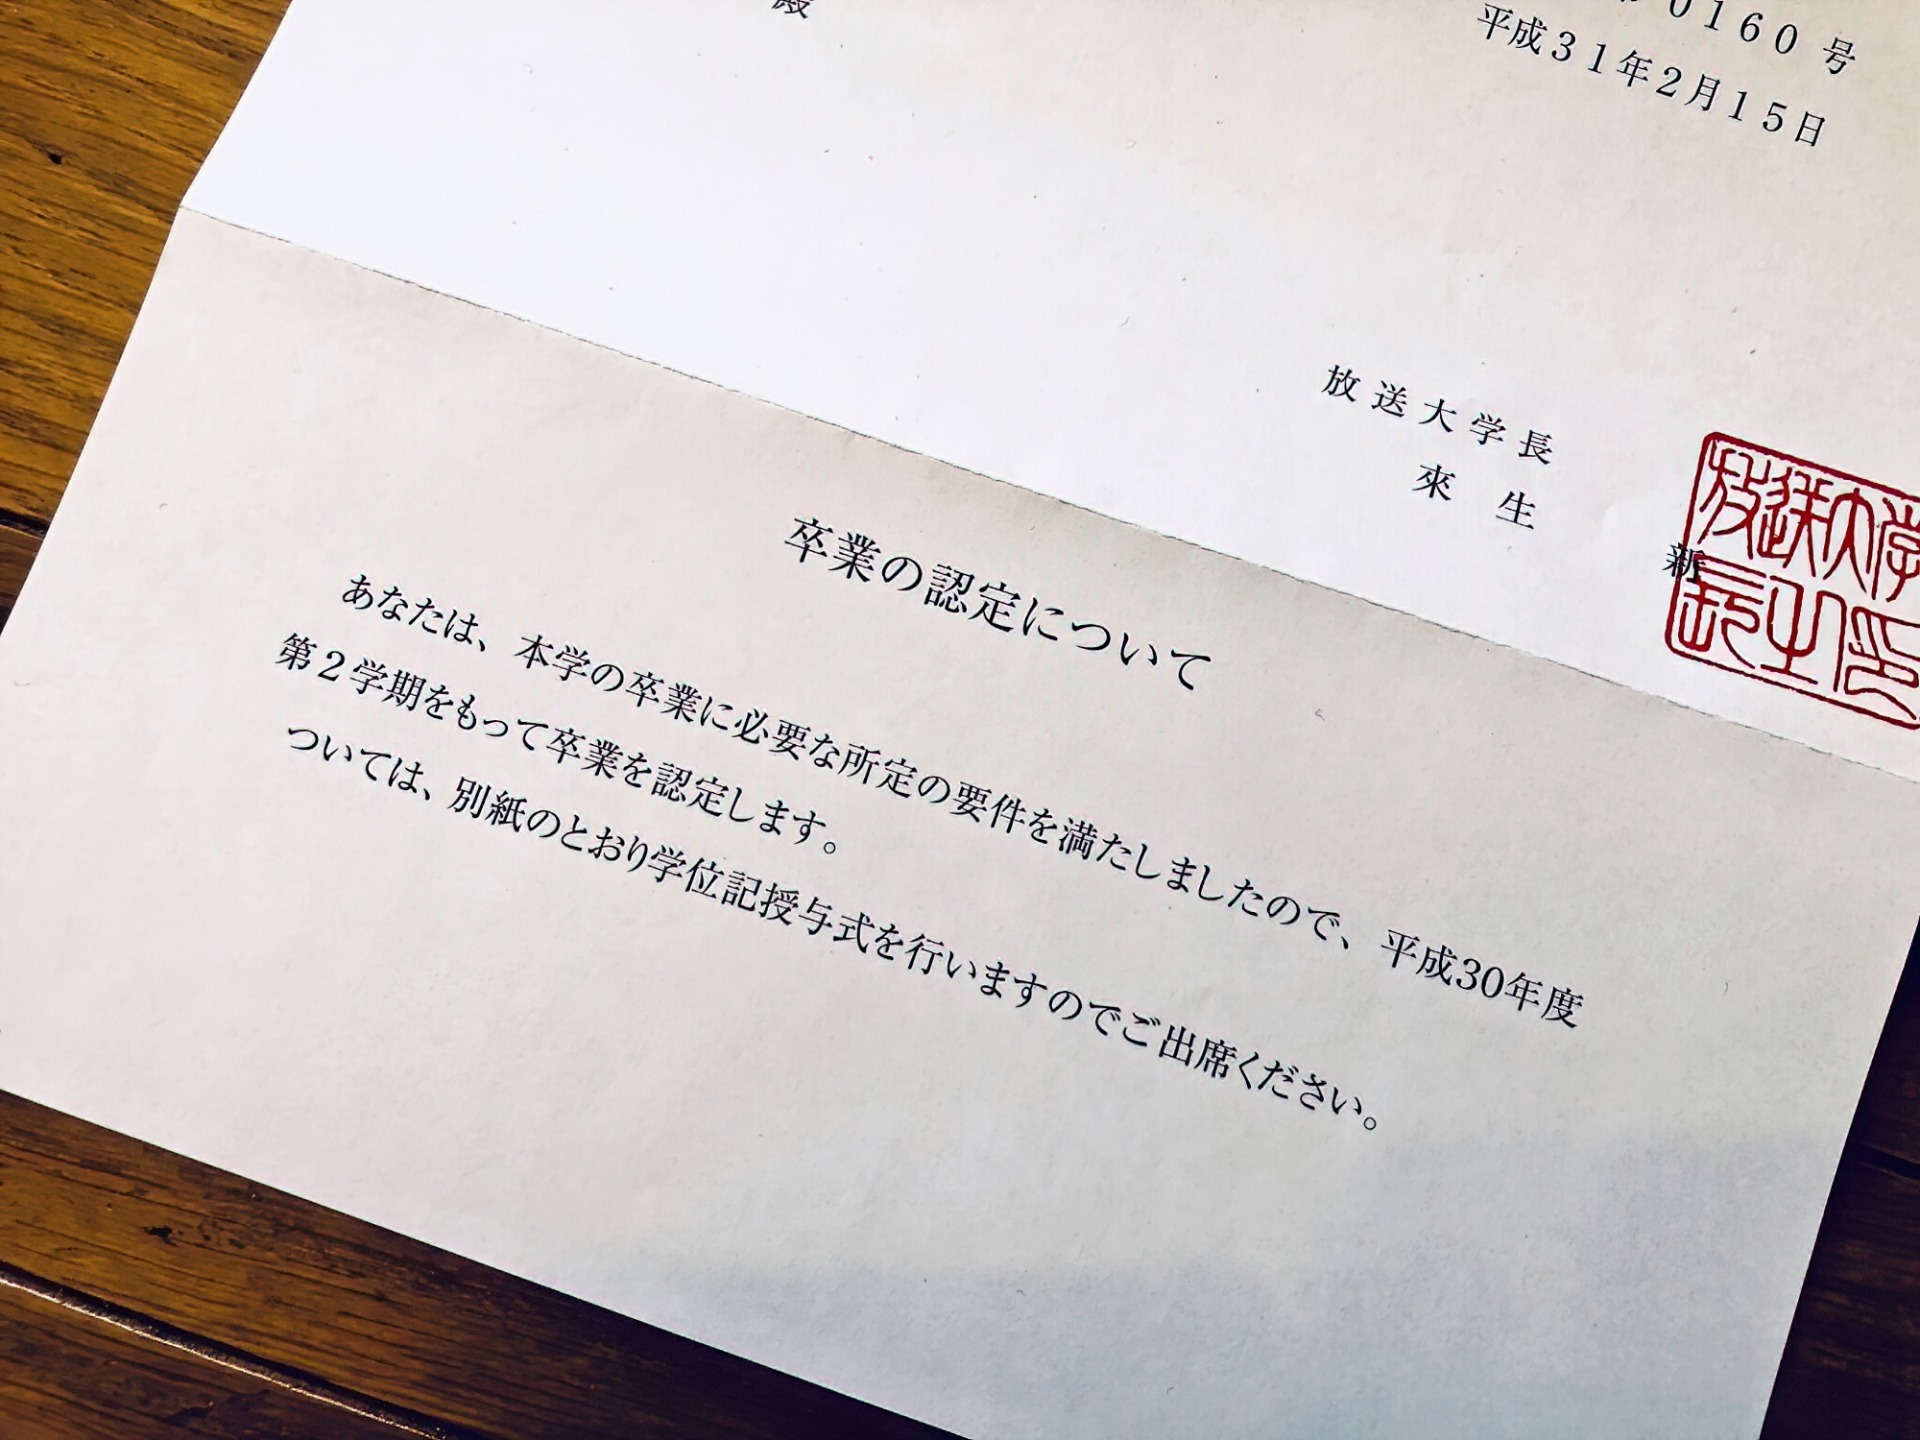 0160 号
平成31年2月15日
殿
放送大学長
來 生 新
放送大学
長之印
卒業の認定について
あなたは、本学の卒業に必要な所定の要件を満たしましたので、平成30年度
第2学期をもって卒業を認定します。
ついては、別紙のとおり学位記授与式を行いますのでご出席ください。